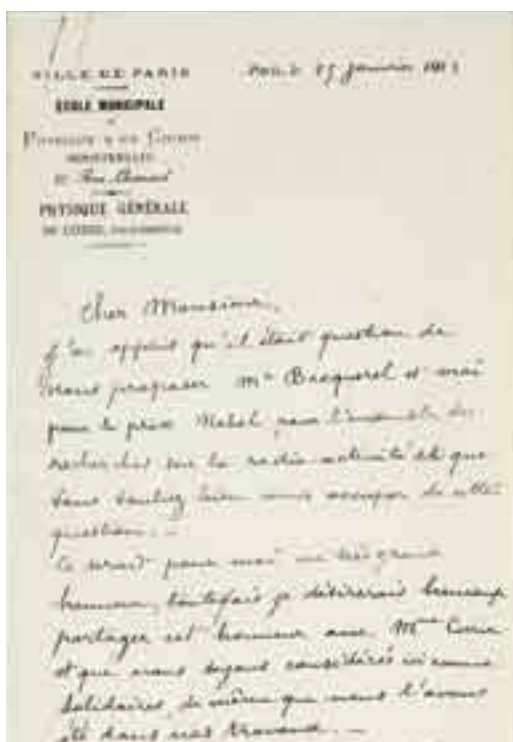 VILLE DE PARIS
ÉCOLE MUNICIPALE
PHYSIQUE GÉNÉRALE
25 janvier
Cher Monsieur,
J'ai appris qu'il était question de
nous proposer Mr Becquerel et moi
pour le prix Nobel pour l'ensemble des
recherches sur la radio-activité et que
vous vouliez bien vous occuper de cette
question. —
Ce serait pour moi un très grand
honneur, toutefois je désirerais beaucoup
partager cet honneur avec Mme Curie
et que nous soyons considérés ici comme
solidaires, de même que nous l'avons
été dans nos travaux. —